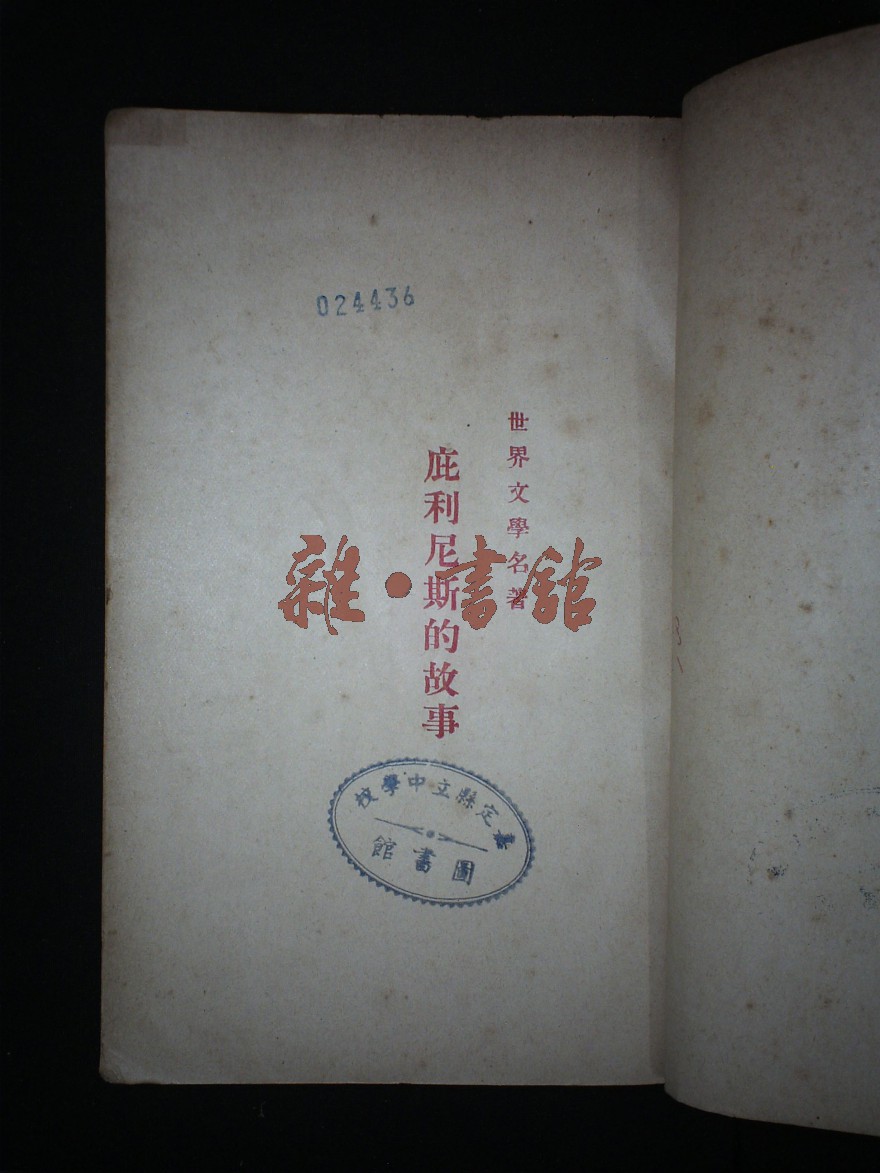 024436
世界文學名著
庇利尼斯的故事
雜·書舘
嘉定縣立中學校
圖書館